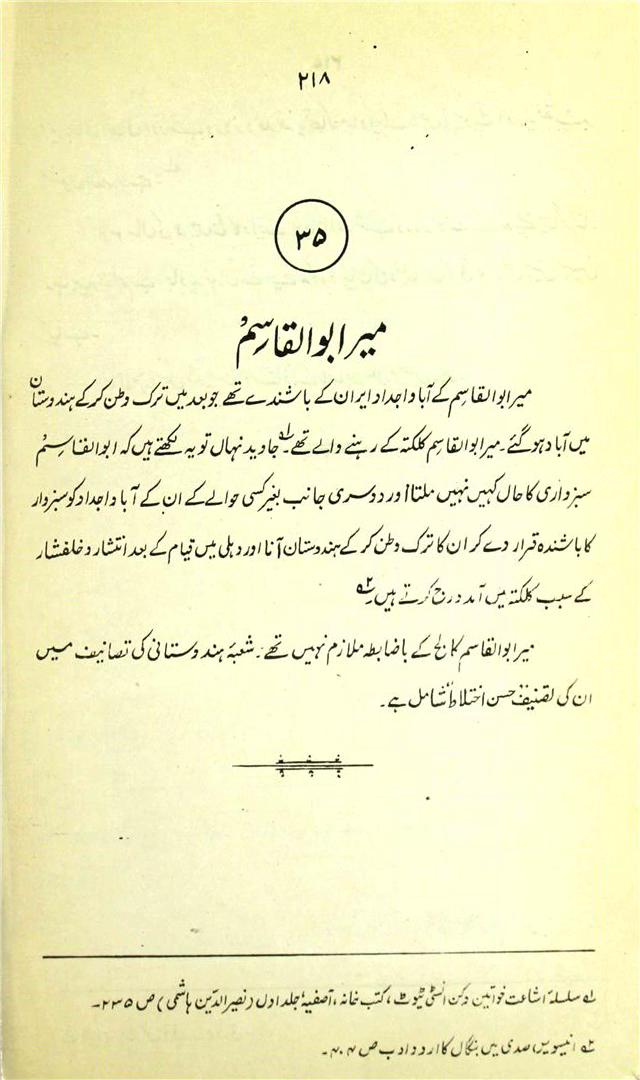 ۲۱۸
۳۵
میر ابوالقاسِم
میر ابوالقاسم کے آبا و اجداد ایران کے باشندے تھے جو بعد میں ترک وطن کرکے ہندوستان
میں آباد ہو گئے۔ میر ابوالقاسم کلکتہ کے رہنے والے تھے۔ ۱؎ جاوید نہاں تو یہ لکھتے ہیں کہ ابوالقاسم
سبزواری کا حال کہیں نہیں ملتا اور دوسری جانب بغیر کسی حوالے کے ان کے آبا و اجداد کو سبزوار
کا باشندہ قرار دے کر ان کا ترک وطن کرکے ہندوستان آنا اور دہلی میں قیام کے بعد انتشار و خلفشار
کے سبب کلکتہ میں آمد درج کرتے ہیں۔ ۲؎
میر ابوالقاسم کالج کے باضابطہ ملازم نہیں تھے۔ شعبۂ ہندوستانی کی تصانیف میں
ان کی تصنیف حسن اختلاط شامل ہے۔
۱؎ سلسلۂ اشاعت خواتین دکن انسٹی ٹیوٹ، کتب خانہ، آصفیہ جلد اول (نصیرالدّین ہاشمی) ص ۲۳۵۔
۲؎ انیسویں صدی میں بنگال کا اردو ادب ص ۴۰۴۔